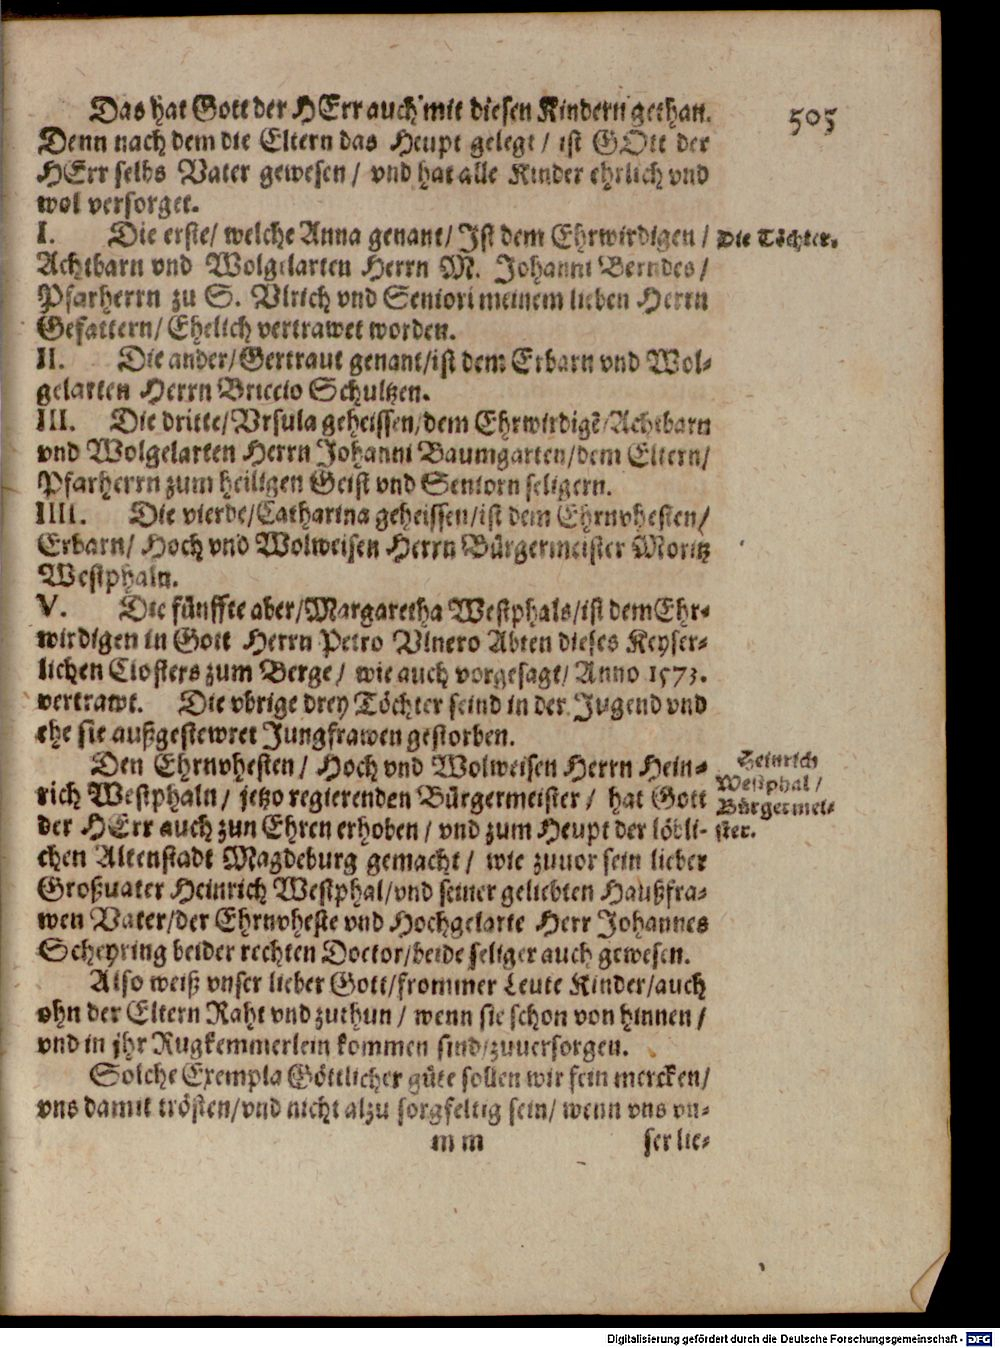 505
Das hat Gott der HErr auch mit diesen Kindern gethan.
Denn nach dem die Eltern das Heupt gelegt / ist GOtt der
HErr selbs Vater gewesen / vnd hat alle Kinder ehrlich vnd
wol versorget.
I. Die erste/ welche Anna genant/ Ist dem Ehrwirdigen /
Die Töchter.
Achtbarn vnd Wolgelarten Herrn M. Johanni Berndes/
Pfarherrn zu S. Vlrich vnd Seniori meinem lieben Herrn
Gefattern/ Ehelich vertrawet worden.
II. Die ander/Gertraut genant/ist dem Erbarn vnd Wol-
gelarten Herrn Briccio Schultzen.
III. Die dritte/Vrsula geheissen/dem Ehrwirdigẽ/Achtbarn
vnd Wolgelarten Herrn Johanni Baumgarten/dem Eltern/
Pfarherrn zum heiligen Geist vnd Seniorn seligern.
IIII. Die vierde/Catharina geheissen/ist dem Ehrnvhesten/
Erbarn/ Hoch vnd Wolweisen Herrn Bürgermeister Moritz
Westphaln.
V. Die fünffte aber/Margaretha Westphals/ist dem Ehr-
wirdigen in Gott Herrn Petro Vlnero Abten dieses Keyser-
lichen Closters zum Berge / wie auch vorgesagt/ Anno 1573.
vertrawt. Die vbrige drey Töchter seind in der Jugend vnd
ehe sie außgestewret Jungfrawen gestorben.
Den Ehrnvhesten / Hoch vnd Wolweisen Herrn Hein-
rich Westphaln / jetzo regierenden Bürgermeister / hat Gott
der HErr auch zun Ehren erhoben / vnd zum Heupt der löbli-
Heinrich
Westphal /
Bürgermei-
ster.
chen Altenstadt Magdeburg gemacht / wie zuuor sein lieber
Großuater Heinrich Westphal/vnd seiner geliebten Haußfra-
wen Vater/der Ehrnvheste vnd Hochgelarte Herr Johannes
Scheyring beider rechten Doctor/beide seliger auch gewesen.
Also weiß vnser lieber Gott/frommer Leute Kinder/auch
ohn der Eltern Raht vnd zuthun / wenn sie schon von hinnen /
vnd in jhr Rugkemmerlein kommen sind/zuuersorgen.
Solche Exempla Göttlicher güte sollen wir fein mercken/
vns damit trösten/vnd nicht alzu sorgfeltig sein/ wenn vns vn-
m m ser lie-
Digitalisierung gefördert durch die Deutsche Forschungsgemeinschaft - DFG